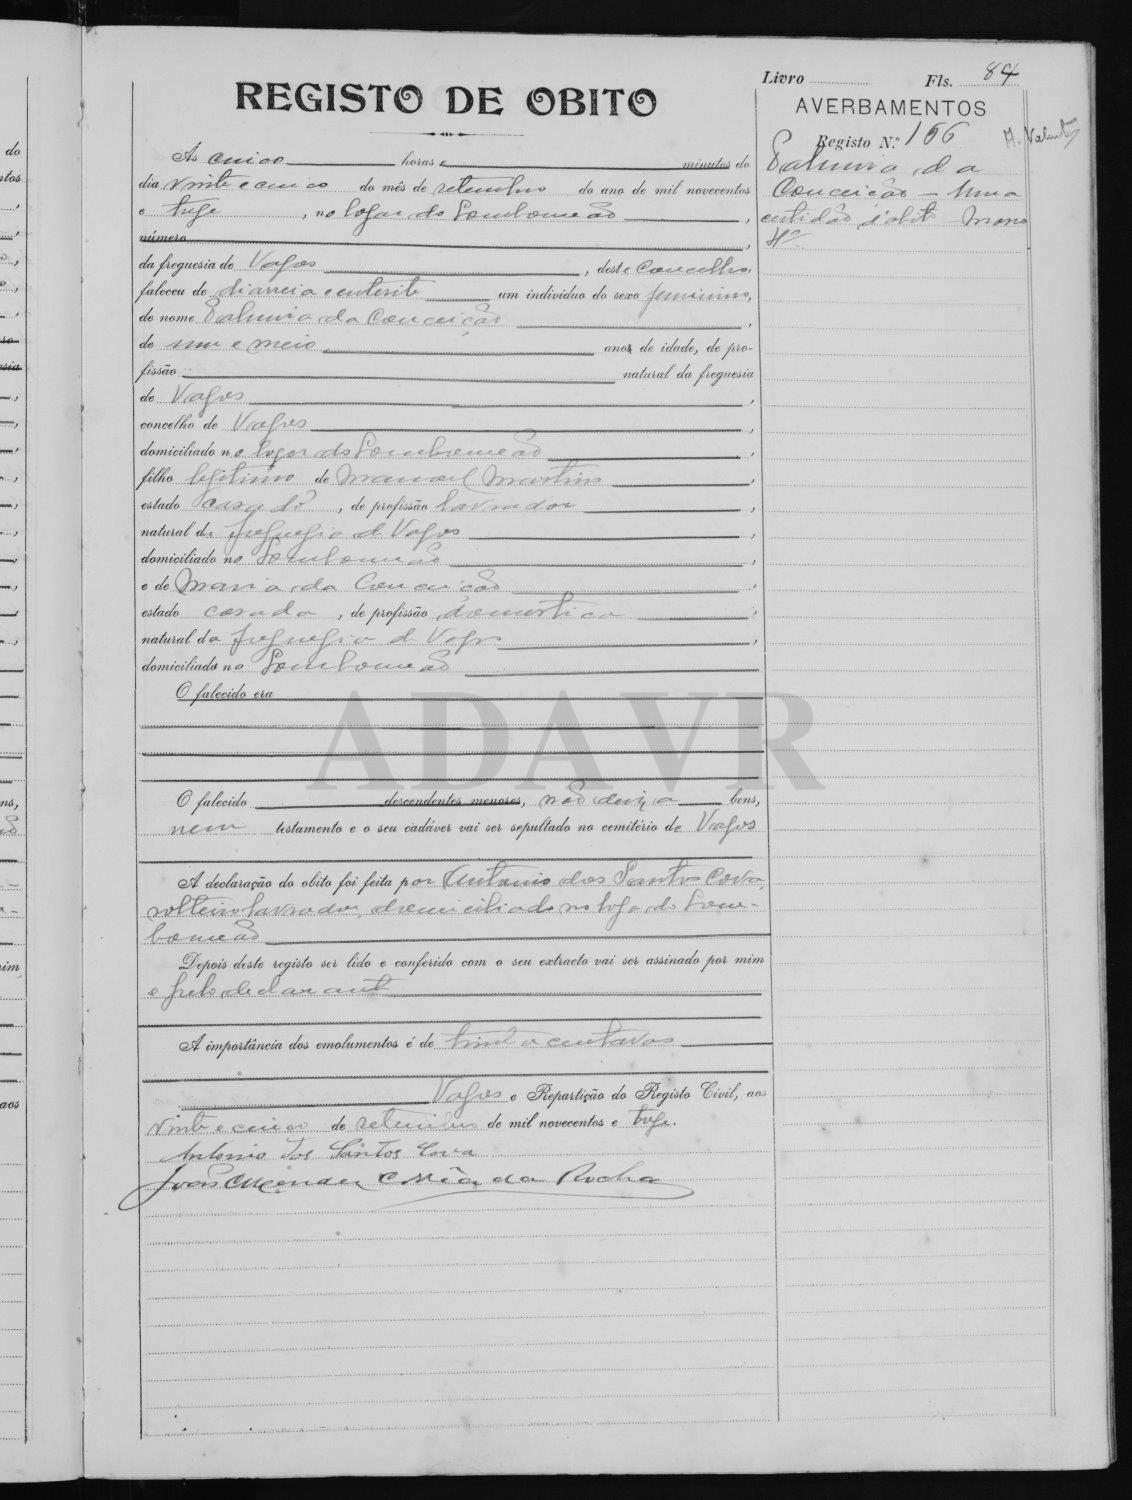 Livro Fls. 84
REGISTO DE OBITO
AVERBAMENTOS
Registo N.º 156
Palmira da
Conceição - Uma
certidão d'obito
Às cinco horas e minutos do
dia vinte e cinco do mês de setembro do ano de mil novecentos
e treze, no logar do Lombomeão,
número
da freguesia de Vagos, deste concelho,
faleceu de diarreia e enterite um indivíduo do sexo feminino,
de nome Palmira da Conceição,
de um e meio anos de idade, de pro-
fissão natural da freguesia
de Vagos,
concelho de Vagos,
domiciliado no logar do Lombomeão,
filho legitimo de Manoel Martins,
estado casado, de profissão lavrador,
natural da freguesia de Vagos,
domiciliado no Lombomeão,
e de Maria da Conceição,
estado casada, de profissão domestica,
natural da freguesia de Vagos,
domiciliada no Lombomeão
O falecido era
ADAVR
O falecido descendentes menores, não deixa bens,
nem testamento e o seu cadáver vai ser sepultado no cemitério de Vagos
A declaração do obito foi feita por Antonio dos Santos Cova,
solteiro lavrador, domiciliado no logar do Lom-
bomeão
Depois deste registo ser lido e conferido com o seu extracto vai ser assinado por mim
e pelo declarante
A importância dos emolumentos é de trinta centavos
Vagos e Repartição do Registo Civil, aos
vinte e cinco de setembro de mil novecentos e treze.
Antonio dos Santos Cova
João Mendes Corrêa da Rocha